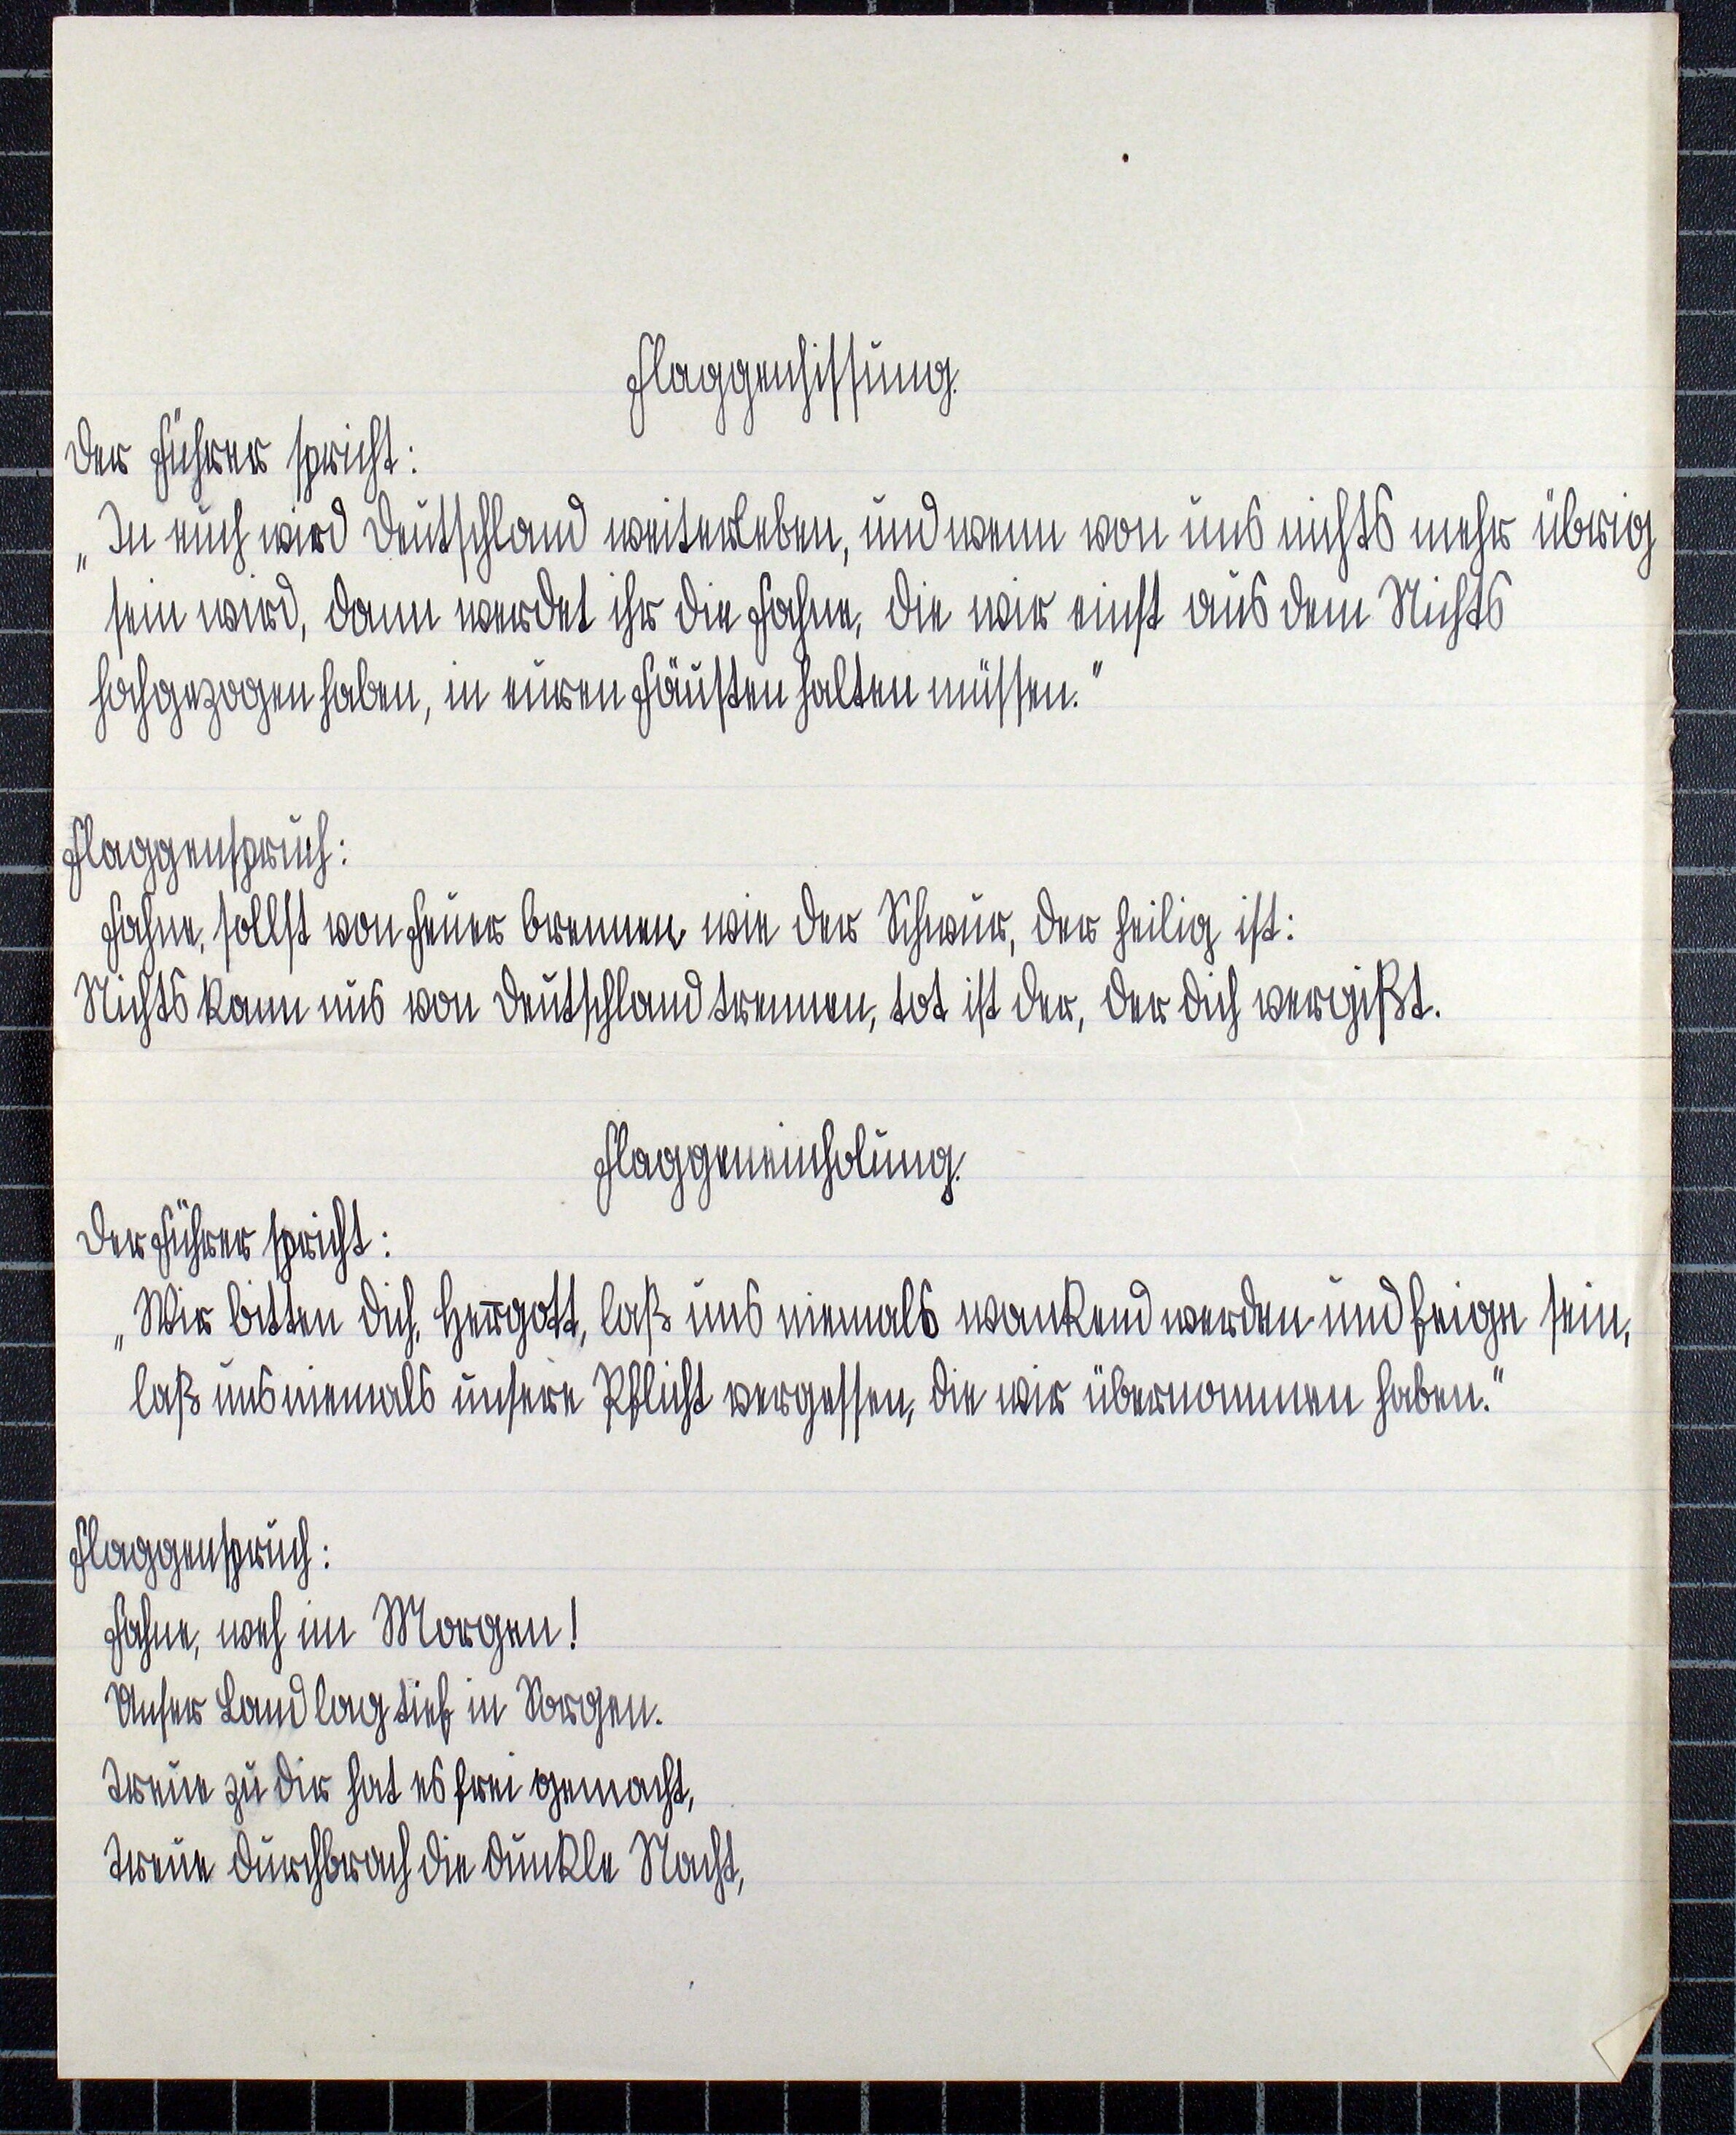 Flaggenhissung.
Der Führer spricht:
„In euch wird Deutschland weiterleben, und wenn von uns nichts mehr übrig
sein wird, dann werdet ihr die Fahne, die wir einst aus dem Nichts
hochgezogen haben, in euren Fäusten halten müssen.“
Flaggenspruch:
Fahne, sollst von Feuer brennen wie der Schwur, der heilig ist:
Nichts kann uns von Deutschland trennen, tot ist der, der dich vergißt.
Flaggeneinholung.
Der Führer spricht:
„Wir bitten dich, Her̅gott, laß uns niemals wankend werden und feige sein,
laß uns niemals unsere Pflicht vergessen, die wir übernommen haben.“
Flaggenspruch:
Fahne, weh im Morgen!
Unser Land lag tief in Sorgen.
Treue zu dir hat es frei gemacht,
Treue durchbrach die dunkle Nacht,